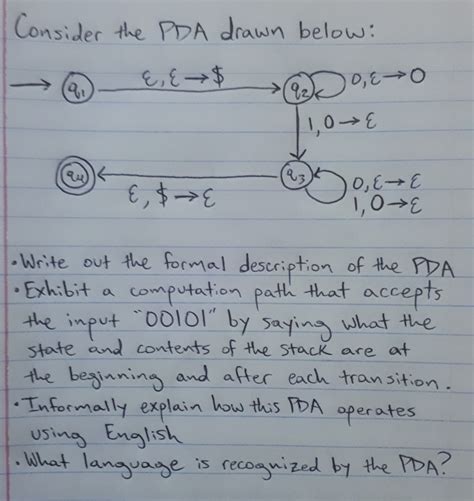 Consider the PDA drawn below:
q1
ε, ε → $
q2
0, ε → 0
1, 0 → ε
q4
ε, $ → ε
q3
0, ε → ε
1, 0 → ε
• Write out the formal description of the PDA
• Exhibit a computation path that accepts
the input "00101" by saying what the
state and contents of the stack are at
the beginning and after each transition.
• Informally explain how this PDA operates
using English
• What language is recognized by the PDA?